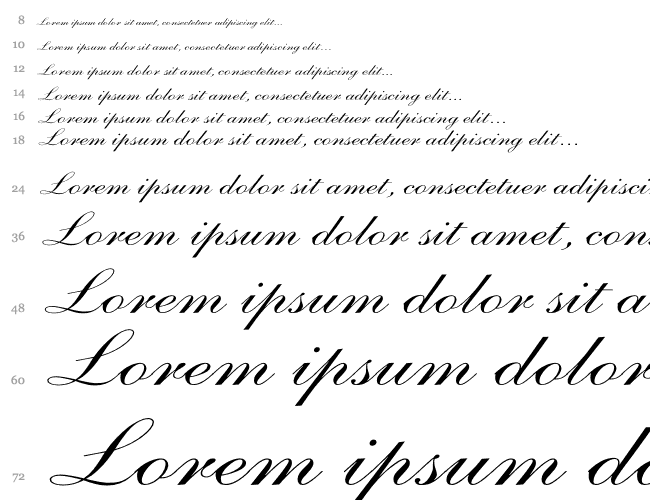 8 Lorem ipsum dolor sit amet, consectetuer adipiscing elit...
10 Lorem ipsum dolor sit amet, consectetuer adipiscing elit...
12 Lorem ipsum dolor sit amet, consectetuer adipiscing elit...
14 Lorem ipsum dolor sit amet, consectetuer adipiscing elit...
16 Lorem ipsum dolor sit amet, consectetuer adipiscing elit...
18 Lorem ipsum dolor sit amet, consectetuer adipiscing elit...
24 Lorem ipsum dolor sit amet, consectetuer adipisci
36 Lorem ipsum dolor sit amet, con
48 Lorem ipsum dolor sit a
60 Lorem ipsum dolor
72 Lorem ipsum do